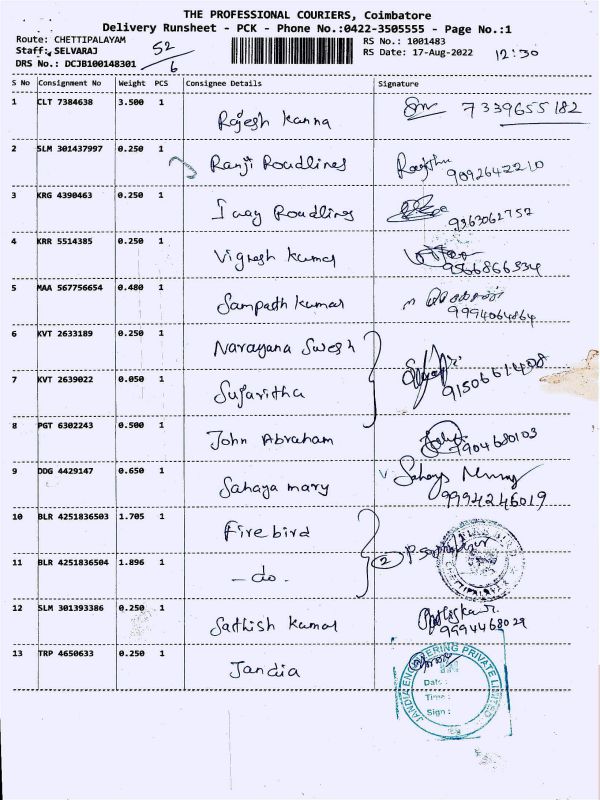 THE PROFESSIONAL COURIERS, Coimbatore
Delivery Runsheet - PCK - Phone No.:0422-3505555 - Page No.:1
Route: CHETTIPALAYAM RS No.: 1001483
Staff: SELVARAJ 52/6 RS Date: 17-Aug-2022 12:30
DRS No.: DCJB100148301
S No Consignment No Weight PCS Consignee Details Signature
1 CLT 7384638 3.500 1 Rajesh Kanna 7339655182
2 SLM 301437997 0.250 1 Ranji Roadlines 9092642210
3 KRG 4390463 0.250 1 I way Roadlines 9363062752
4 KRR 5514385 0.250 1 Vignesh Kumar 9566866534
5 MAA 567756654 0.480 1 Sampath Kumar 9994064864
6 KVT 2633189 0.250 1 Narayana Swesh
7 KVT 2639022 0.050 1 Sujaritha 9150661408
8 PGT 6302243 0.500 1 John Abraham 9904680103
9 DDG 4429147 0.650 1 Sahaya mary Sahaya 9994246019
10 BLR 4251836503 1.705 1 Fire bird
11 BLR 4251836504 1.896 1 - do - 2
12 SLM 301393386 0.250 1 Sathish Kumar 9994468029
13 TRP 4650633 0.250 1 Jandia
JANDIA ENGINEERING PRIVATE LIMITED
Date :
Time :
Sign :